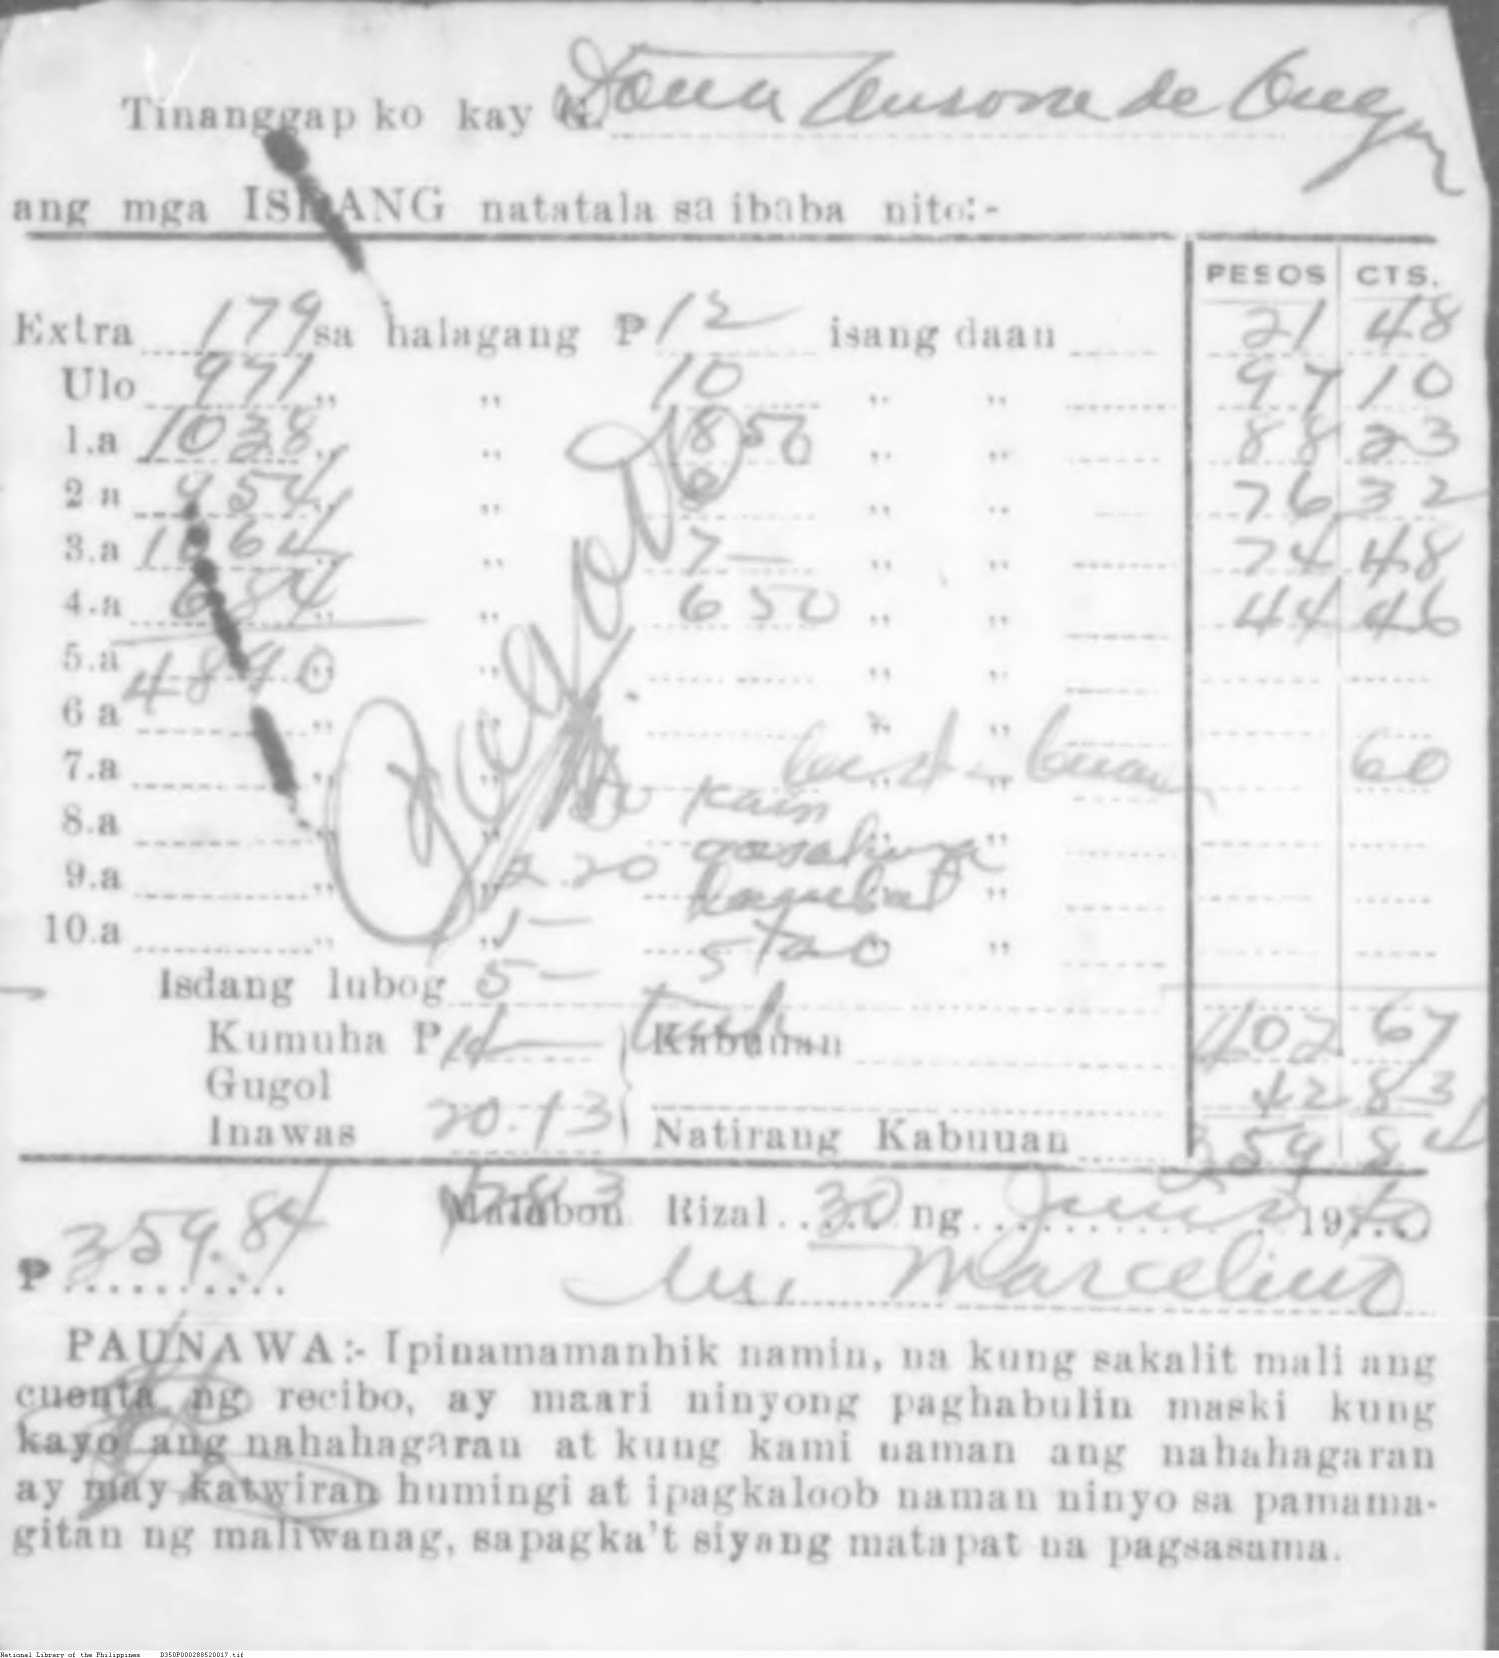 Tinanggap ko kay G. Dona Ausona de Ongpin
ang mga ISDANG natatala sa ibaba nito:-
PESOS CTS.
Extra 179 sa halagang ₱ 12 isang daan 21 48
Ulo 971 ,, ,, 10 ,, ,, 97 10
1.a 1038 ,, ,, 8 50 ,, ,, 88 23
2 a 954 ,, ,, 8 ,, ,, 76 32
3.a 1064 ,, ,, 7 — ,, ,, 74 48
4.a 684 ,, ,, 6 50 ,, ,, 44 46
5.a 4890 ,, ,, ,, ,,
6 a ,, ,, ,, ,,
7.a ,, ,, ,, ,, 60
8.a ,, ,, kain ,, ,,
9.a ,, ,, 2.20 ,, ,,
10.a ,, ,, 5 tao ,, ,,
Isdang lubog 5 —
Kumuha P Kabuuan 402 67
Gugol 42 83
Inawas 20.13 Natirang Kabuuan 359 84
Malabon Rizal 30 ng Junio 19
₱ 359.84 Marcelino
PAUNAWA:- Ipinamamanhik namin, na kung sakalit mali ang
cuenta ng recibo, ay maari ninyong paghabulin maski kung
kayo ang nahahagaran at kung kami naman ang nahahagaran
ay may katwiran humingi at ipagkaloob naman ninyo sa pamama-
gitan ng maliwanag, sapagka't siyang matapat na pagsasama.
National Library of the Philippines D350P000288520017.tif